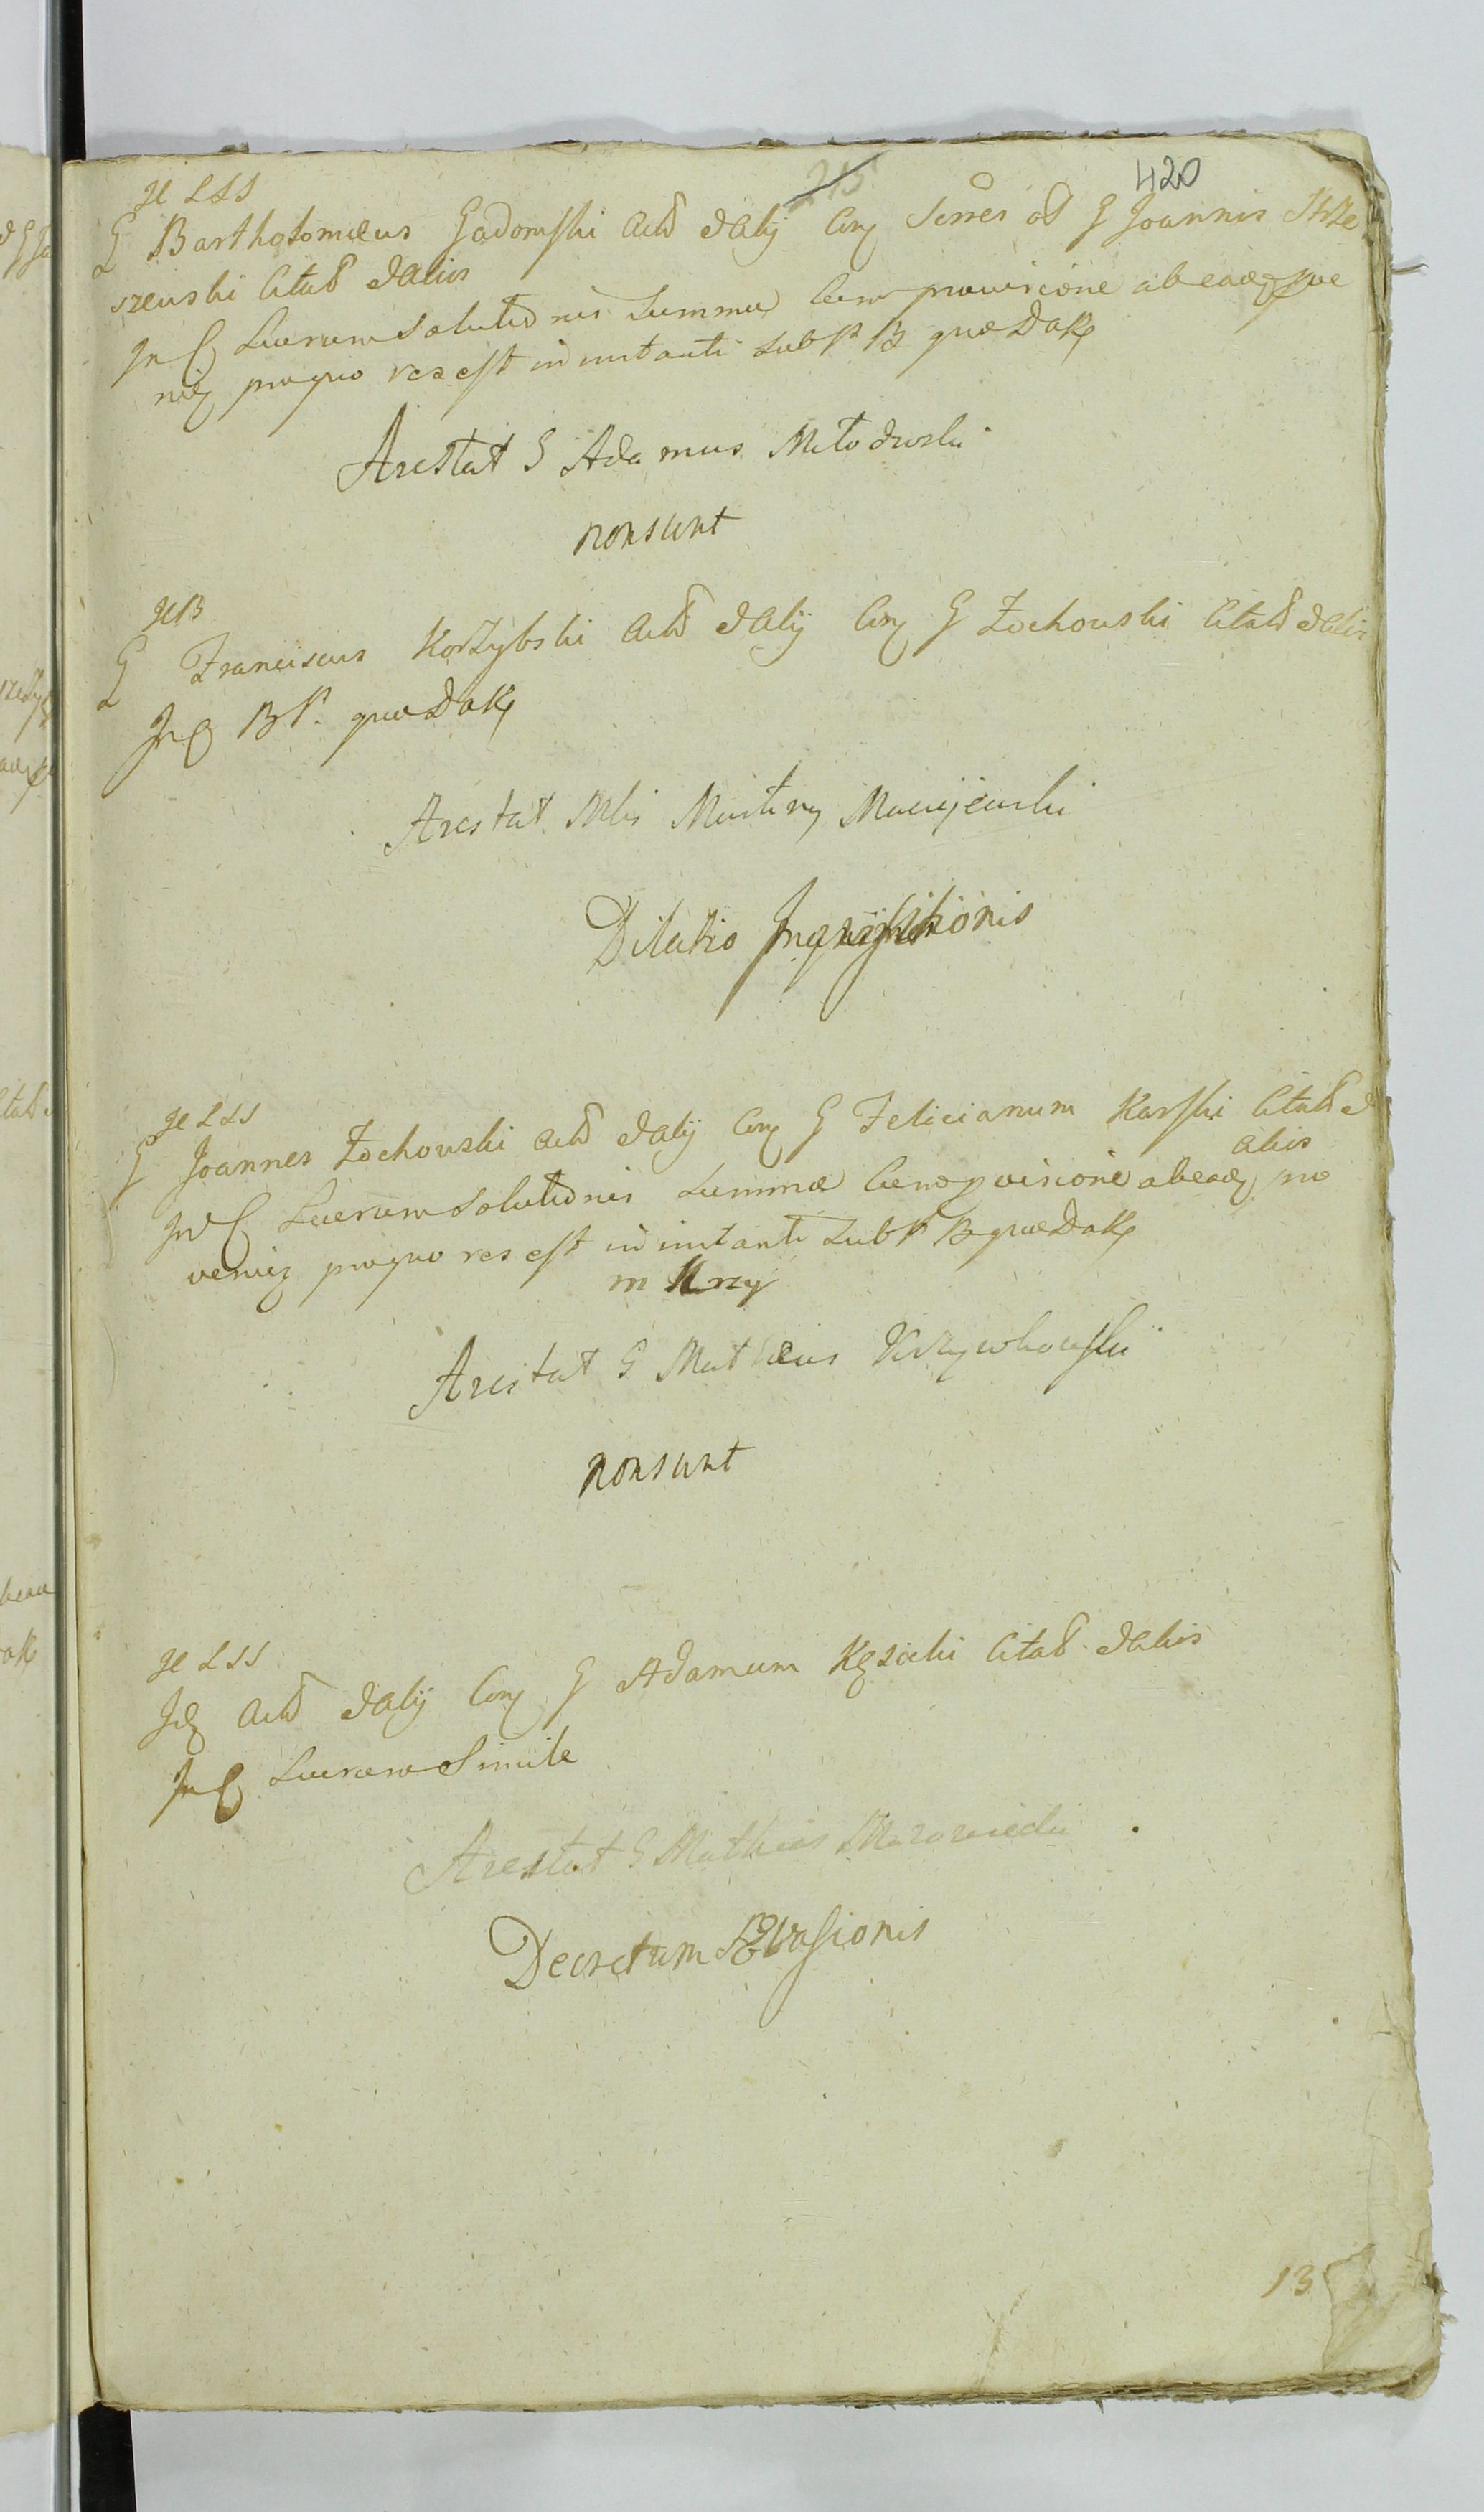 215 420
H LSS
G Bartholomæus Gadomski Actd et alij Con Serres olt G Joannis Trze
szewski Citatd et alios
In C Lucrum Solutionis Summæ cum provisione ab eadem prove
nien pro quo res est in instanti sub P B quæ Dak
Arestat G Adamus Młodzwski
non sunt
HB
G Franciscus Korzybski Actd et alij Con G Żochowski Citatd et alios
In C B P. quæ Dak
Arestat Nblis Martiny Maciejewski
Dilatio Inquisitionis
H LSS
G Joannes Żochowski Actd et alij Con G Felicianum Karski Citatd et
alios
In C Lucrum Solutionis Summæ cum provisione ab eadem pro
venien pro quo res est in instanti sub P B quæ Dak
m Krzy
Arestat G Mathæus Krzywkowski
non sunt
H LSS
Id Actd et alij Con G Adamum Kęsicki Citatd et alios
In C Lucrum Simile
Arestat G Mathias
Decretum Evasionis
13